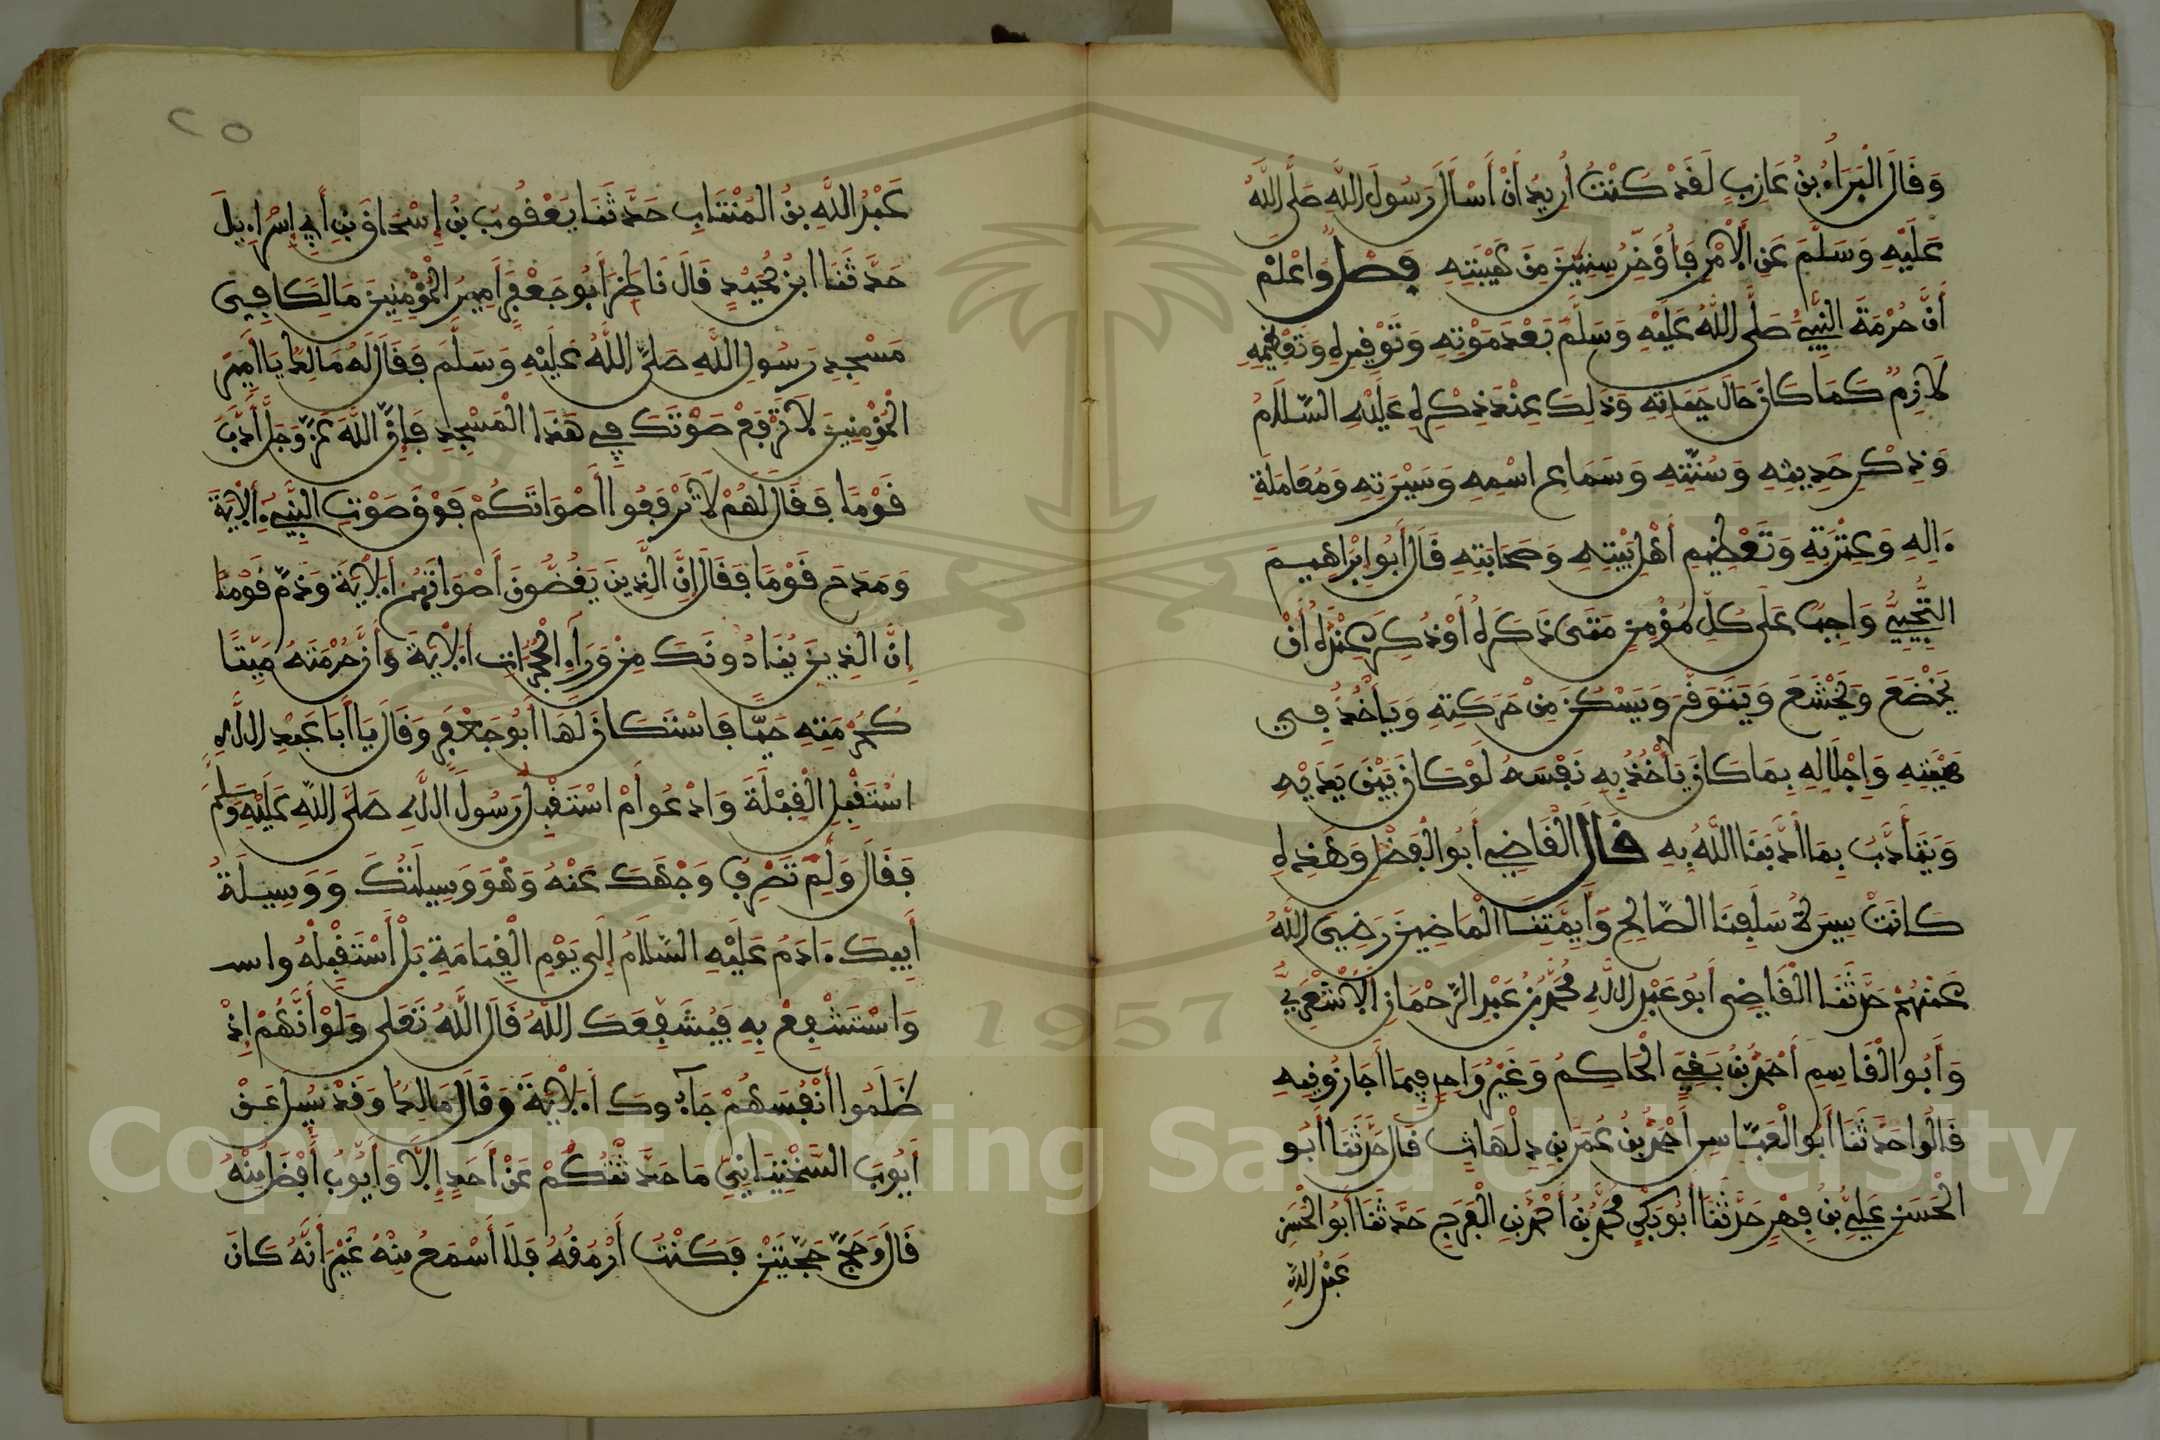 وَقَالَ الْبَرَاءُ بْنُ عَازِبٍ لَقَدْ كُنْتُ أُرِيدُ أَنْ أَسْأَلَ رَسُولَ اللَّهِ صَلَّى اللَّهُ
عَلَيْهِ وَسَلَّمَ عَنِ الْأَمْرِ فَأُؤَخِّرُ سِنِينَ مِنْ هَيْبَتِهِ فَصْلٌ وَاعْلَمْ
أَنَّ حُرْمَةَ النَّبِيِّ صَلَّى اللَّهُ عَلَيْهِ وَسَلَّمَ بَعْدَ مَوْتِهِ وَتَوْقِيرِهِ وَتَعْظِيمِهِ
لَازِمٌ كَمَا كَانَ حَالَ حَيَاتِهِ وَذَلِكَ عِنْدَ ذِكْرِهِ عَلَيْهِ السَّلَامُ
وَذِكْرِ حَدِيثِهِ وَسُنَّتِهِ وَسَمَاعِ اسْمِهِ وَسِيرَتِهِ وَمُعَامَلَةِ
ءَالِهِ وَعِتْرَتِهِ وَتَعْظِيمِ أَهْلِ بَيْتِهِ وَصَحَابَتِهِ قَالَ أَبُو إِبْرَاهِيمَ
التُّجِيبِيُّ وَاجِبٌ عَلَى كُلِّ مُؤْمِنٍ مَتَى ذَكَرَهُ أَوْ ذُكِرَ عِنْدَهُ أَنْ
يَخْضَعَ وَيَخْشَعَ وَيَتَوَقَّرَ وَيَسْكُنَ مِنْ حَرَكَتِهِ وَيَأْخُذَ فِي
هَيْبَتِهِ وَإِجْلَالِهِ بِمَا كَانَ يَأْخُذُ بِهِ نَفْسَهُ لَوْ كَانَ بَيْنَ يَدَيْهِ
وَيَتَأَدَّبَ بِمَا أَدَّبَنَا اللَّهُ بِهِ قَالَ الْقَاضِي أَبُو الْفَضْلِ وَهَذِهِ
كَانَتْ سِيرَةُ سَلَفِنَا الصَّالِحِ وَأَئِمَّتِنَا الْمَاضِينَ رَضِيَ اللَّهُ
عَنْهُمْ حَدَّثَنَا الْقَاضِي أَبُو عَبْدِ اللَّهِ مُحَمَّدُ بْنُ عَبْدِ الرَّحْمَانِ الْأَشْعَرِيُّ
وَأَبُو الْقَاسِمِ أَحْمَدُ بْنُ بَقِيٍّ الْحَاكِمُ وَغَيْرُ وَاحِدٍ فِيمَا أَجَازُونِيهِ
قَالُوا حَدَّثَنَا أَبُو الْعَبَّاسِ أَحْمَدُ بْنُ عُمَرَ بْنِ دِلْهَاثٍ قَالَ حَدَّثَنَا أَبُو
الْحَسَنِ عَلِيُّ بْنُ فِهْرٍ حَدَّثَنَا أَبُو بَكْرٍ مُحَمَّدُ بْنُ أَحْمَدَ بْنِ الْفَرَجِ حَدَّثَنَا أَبُو الْحَسَنِ
عَبْدُ اللَّهِ
٢٥
عَبْدُ اللَّهِ بْنُ الْمُنْتَابِ حَدَّثَنَا يَعْقُوبُ بْنُ إِسْحَاقَ بْنِ أَبِي إِسْرَاءِيلَ
حَدَّثَنَا ابْنُ حُمَيْدٍ قَالَ نَاظَرَ أَبُو جَعْفَرٍ أَمِيرُ الْمُؤْمِنِينَ مَالِكًا فِي
مَسْجِدِ رَسُولِ اللَّهِ صَلَّى اللَّهُ عَلَيْهِ وَسَلَّمَ فَقَالَ لَهُ مَالِكٌ يَا أَمِيرَ
الْمُؤْمِنِينَ لَا تَرْفَعْ صَوْتَكَ فِي هَذَا الْمَسْجِدِ فَإِنَّ اللَّهَ عَزَّ وَجَلَّ أَدَّبَ
قَوْمًا فَقَالَ لَهُمْ لَا تَرْفَعُوا أَصْوَاتَكُمْ فَوْقَ صَوْتِ النَّبِيءِ الْآيَةَ
وَمَدَحَ قَوْمًا فَقَالَ إِنَّ الَّذِينَ يَغُضُّونَ أَصْوَاتَهُمُ الْآيَةَ وَذَمَّ قَوْمًا
إِنَّ الَّذِينَ يُنَادُونَكَ مِنْ وَرَاءِ الْحُجُرَاتِ الْآيَةَ وَأَنَّ حُرْمَتَهُ مَيِّتًا
كَحُرْمَتِهِ حَيًّا فَاسْتَكَانَ لَهَا أَبُو جَعْفَرٍ وَقَالَ يَا أَبَا عَبْدِ اللَّهِ
اسْتَقْبِلِ الْقِبْلَةَ وَادْعُو أَمْ اسْتَقْبِلُ رَسُولَ اللَّهِ صَلَّى اللَّهُ عَلَيْهِ وَسَلَّمَ
فَقَالَ وَلِمَ تَصْرِفُ وَجْهَكَ عَنْهُ وَهُوَ وَسِيلَتُكَ وَوَسِيلَةُ
أَبِيكَ ءَادَمَ عَلَيْهِ السَّلَامُ إِلَى يَوْمِ الْقِيَامَةِ بَلْ اسْتَقْبِلْهُ واسـ
وَاسْتَشْفِعْ بِهِ فَيُشَفِّعَكَ اللَّهُ قَالَ اللَّهُ تَعَلَى وَلَوْ أَنَّهُمْ إِذْ
ظَلَمُوا أَنْفُسَهُمْ جَاءُوكَ الْآيَةَ وَقَالَ مَالِكٌ وَقَدْ سُئِلَ عَنْ
أَيُّوبَ السَّخْتِيَانِيِّ مَا حَدَّثْتُكُمْ عَنْ أَحَدٍ إِلَّا وَأَيُّوبُ أَفْضَلُ مِنْهُ
قَالَ وَحَجَّ حَجَّتَيْنِ فَكُنْتُ أَرْمُقُهُ فَلَا أَسْمَعُ مِنْهُ غَيْرَ أَنَّهُ كَانَ
1957
Copyright © King Saud University